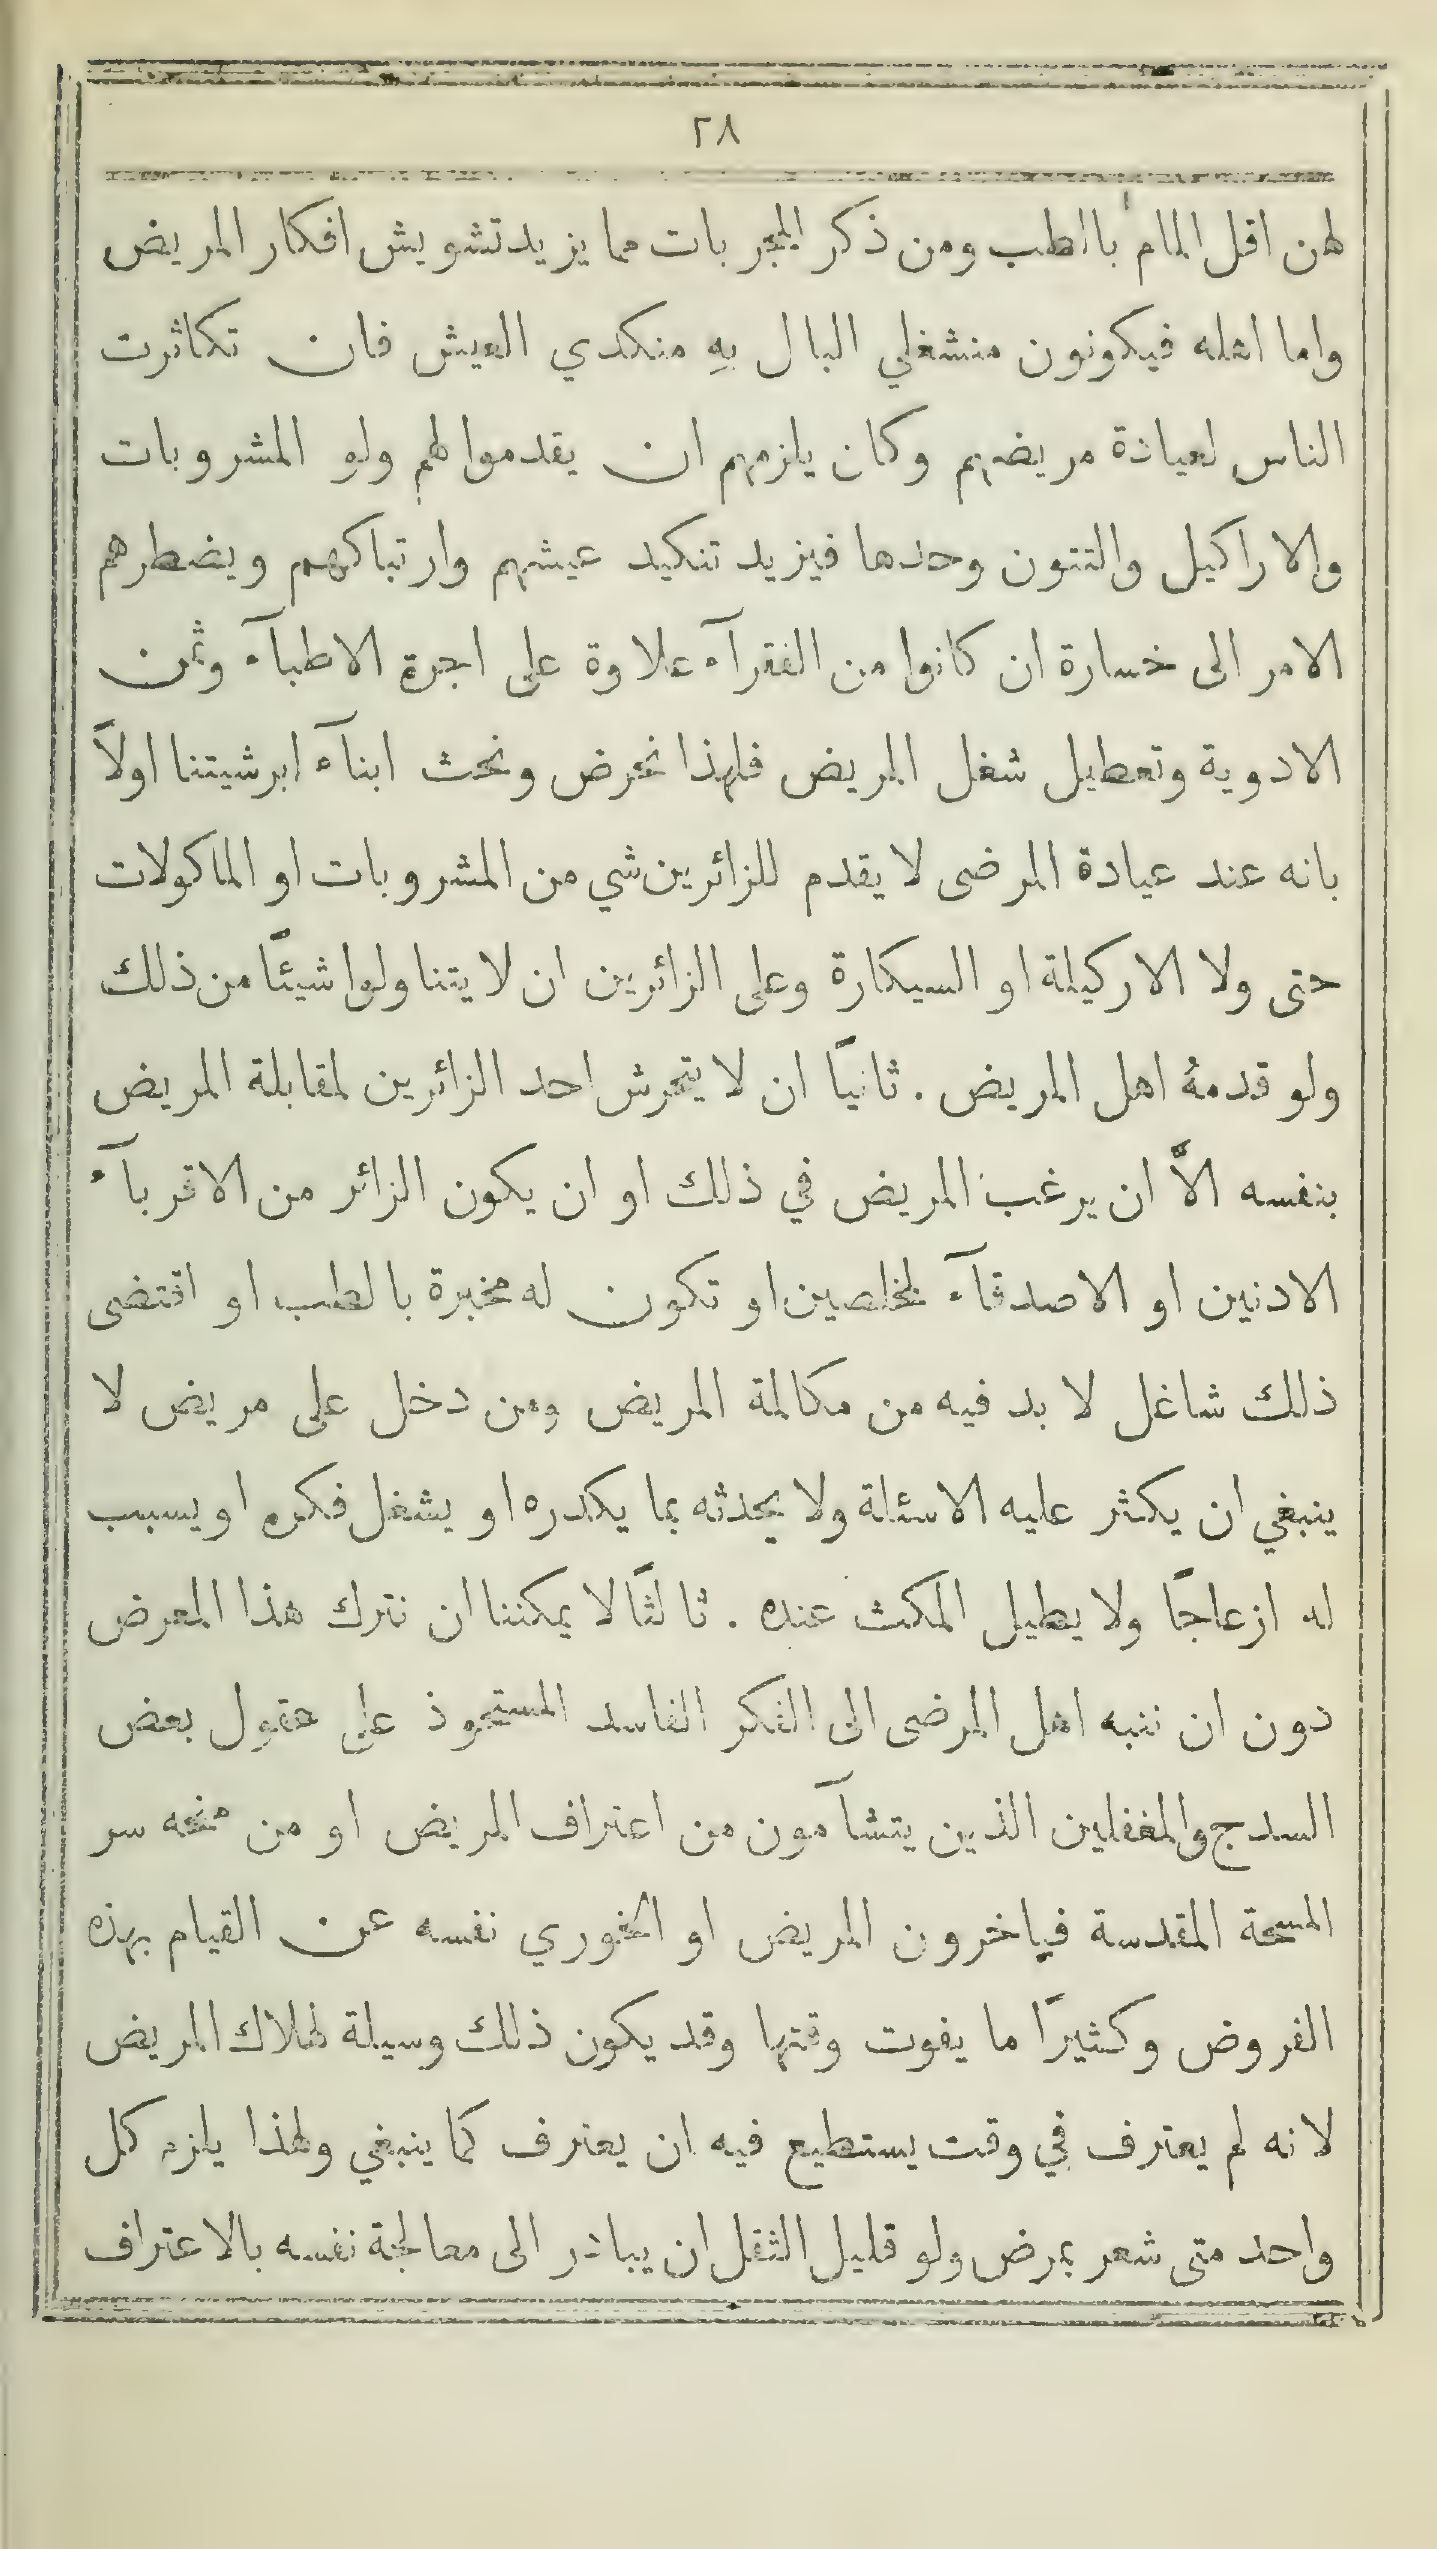 ٢٨
لهن اقل المام بالطب ومن ذكر المجربات مما يزيد تشويش افكار المريض
واما اهله فيكونون منشغلي البال بهِ منكدي العيش فان تكاثرت
الناس لعيادة مريضهم وكان يلزمهم ان يقدموا لهم ولو المشروبات
والاراكيل والتتون وحدها فيزيد تنكيد عيشهم وارتباكهم ويضطرهم
الامر الى خسارة ان كانوا من الفقرآء علاوة على اجرة الاطبآء وثمن
الادوية وتعطيل شغل المريض فلهذا نحرض ونحث ابنآء ابرشيتنا اولاً
بانه عند عيادة المرضى لا يقدم للزائرين شي من المشروبات او الماكولات
حتى ولا الاركيلة او السيكارة وعلى الزائرين ان لا يتناولوا شيئًا من ذلك
ولو قدمهُ اهل المريض . ثانيًا ان لا يتحرش احد الزائرين لمقابلة المريض
بنفسه الاَّ ان يرغب المريض في ذلك او ان يكون الزائر من الاقربآء
الادنين او الاصدقآء المخلصين او تكون له مخبرة بالطب او اقتضى
ذلك شاغل لا بد فيه من مكالمة المريض ومن دخل على مريض لا
ينبغي ان يكثر عليه الاسئلة ولا يحدثه بما يكدره او يشغل فكره او يسبب
له ازعاجًا ولا يطيل المكث عنده . ثالثًا لا يمكننا ان نترك هذا المعرض
دون ان ننبه اهل المرضى الى الفكر الفاسد المستحوذ على عقول بعض
السدج والمغفلين الذين يتشآمون من اعتراف المريض او من منحه سر
المسحة المقدسة فياخرون المريض او الخوري نفسه عن القيام بهذه
الفروض وكثيرًا ما يفوت وقتها وقد يكون ذلك وسيلة لهلاك المريض
لانه لم يعترف في وقت يستطيع فيه ان يعترف كما ينبغي ولهذا يلزم كل
واحد متى شعر بمرض ولو قليل الثقل ان يبادر الى معالجة نفسه بالاعتراف